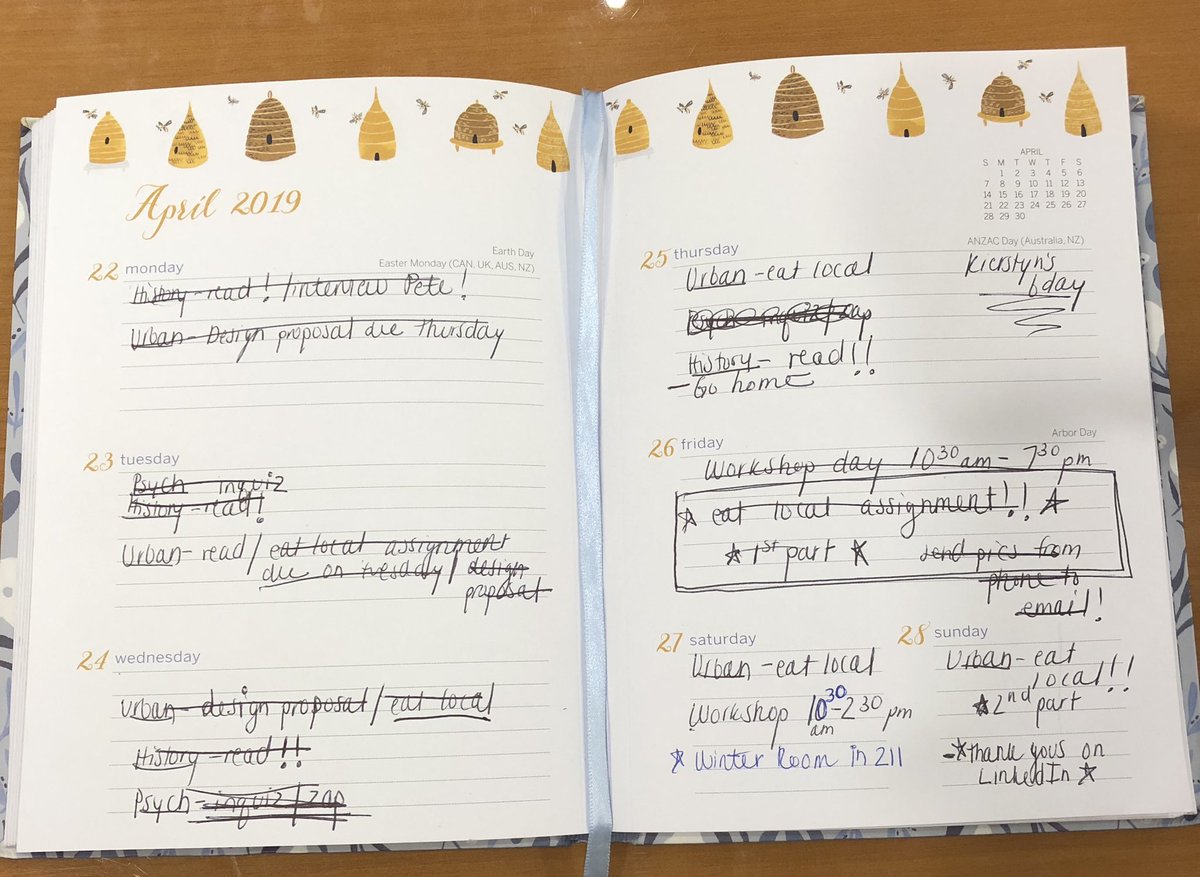 April 2019
Earth Day
22 monday Easter Monday (CAN, UK, AUS, NZ)
History - read! / interview Pete!
Urban - Design proposal due thursday
23 tuesday
Psych inquiz
History - read!
Urban - read / eat local assignment
due on tuesday / design
proposal
24 wednesday
Urban - design proposal / eat local
History - read!!
Psych - inquiz / zap
APRIL
S M T W T F S
1 2 3 4 5 6
7 8 9 10 11 12 13
14 15 16 17 18 19 20
21 22 23 24 25 26 27
28 29 30
25 thursday ANZAC Day (Australia, NZ)
Urban - eat local Kierstyn's
bday
Psych - inquiz / zap
History - read!!
- Go home
26 friday Arbor Day
Workshop day 10 30 am - 7 30 pm
eat local assignment!!
1st part send pics from
phone to
email!
27 saturday
Urban - eat local
Workshop 10 30 - 2 30 pm
am
Winter Room in 211
28 sunday
Urban - eat
local!!
2nd part
- thank yous on
LinkedIn